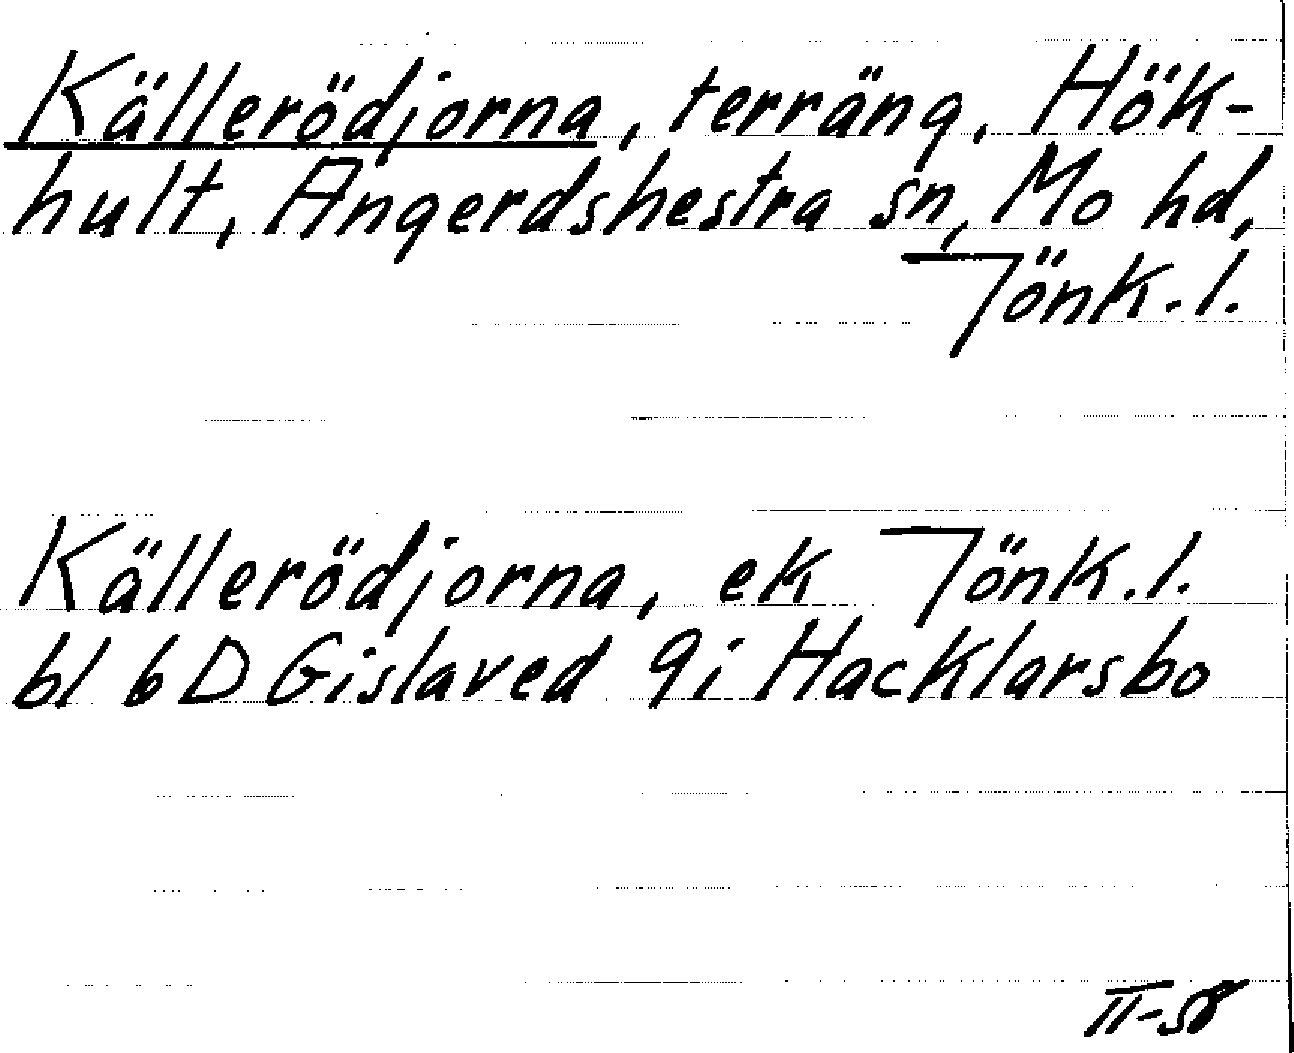 Källerödjorna, terräng, Hök-
hult, Angerdshestra sn, Mo hd,
Jönk. l.
Källerödjorna, ek Jönk. l.
bl 6 D Gislaved 9i Hacklarsbo
II-58